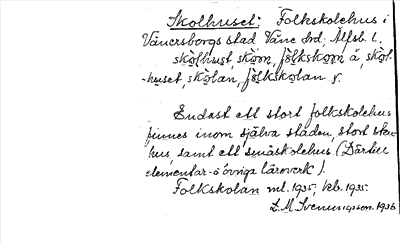 Skolhuset: Folkskolehus i
Vänersborgs stad Väne hrd, Älfsb. l.
skolhust, skoɷn, folkskoɷn å, skol-
huset, skolan, folkskolan f.
Endast ett stort folkskolehus
finnes inom själva staden, stort sten-
hus, samt ett småskolehus (Därtill
elementar- o övriga läroverk).
Folkskolan ml. 1935, keb. 1935.
L. M. Svenungsson. 1936